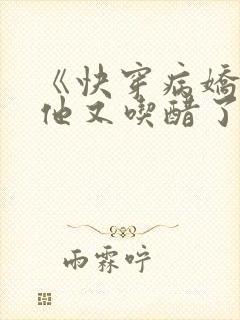 《快穿病嬌
他又喫醋了
雨霖咛